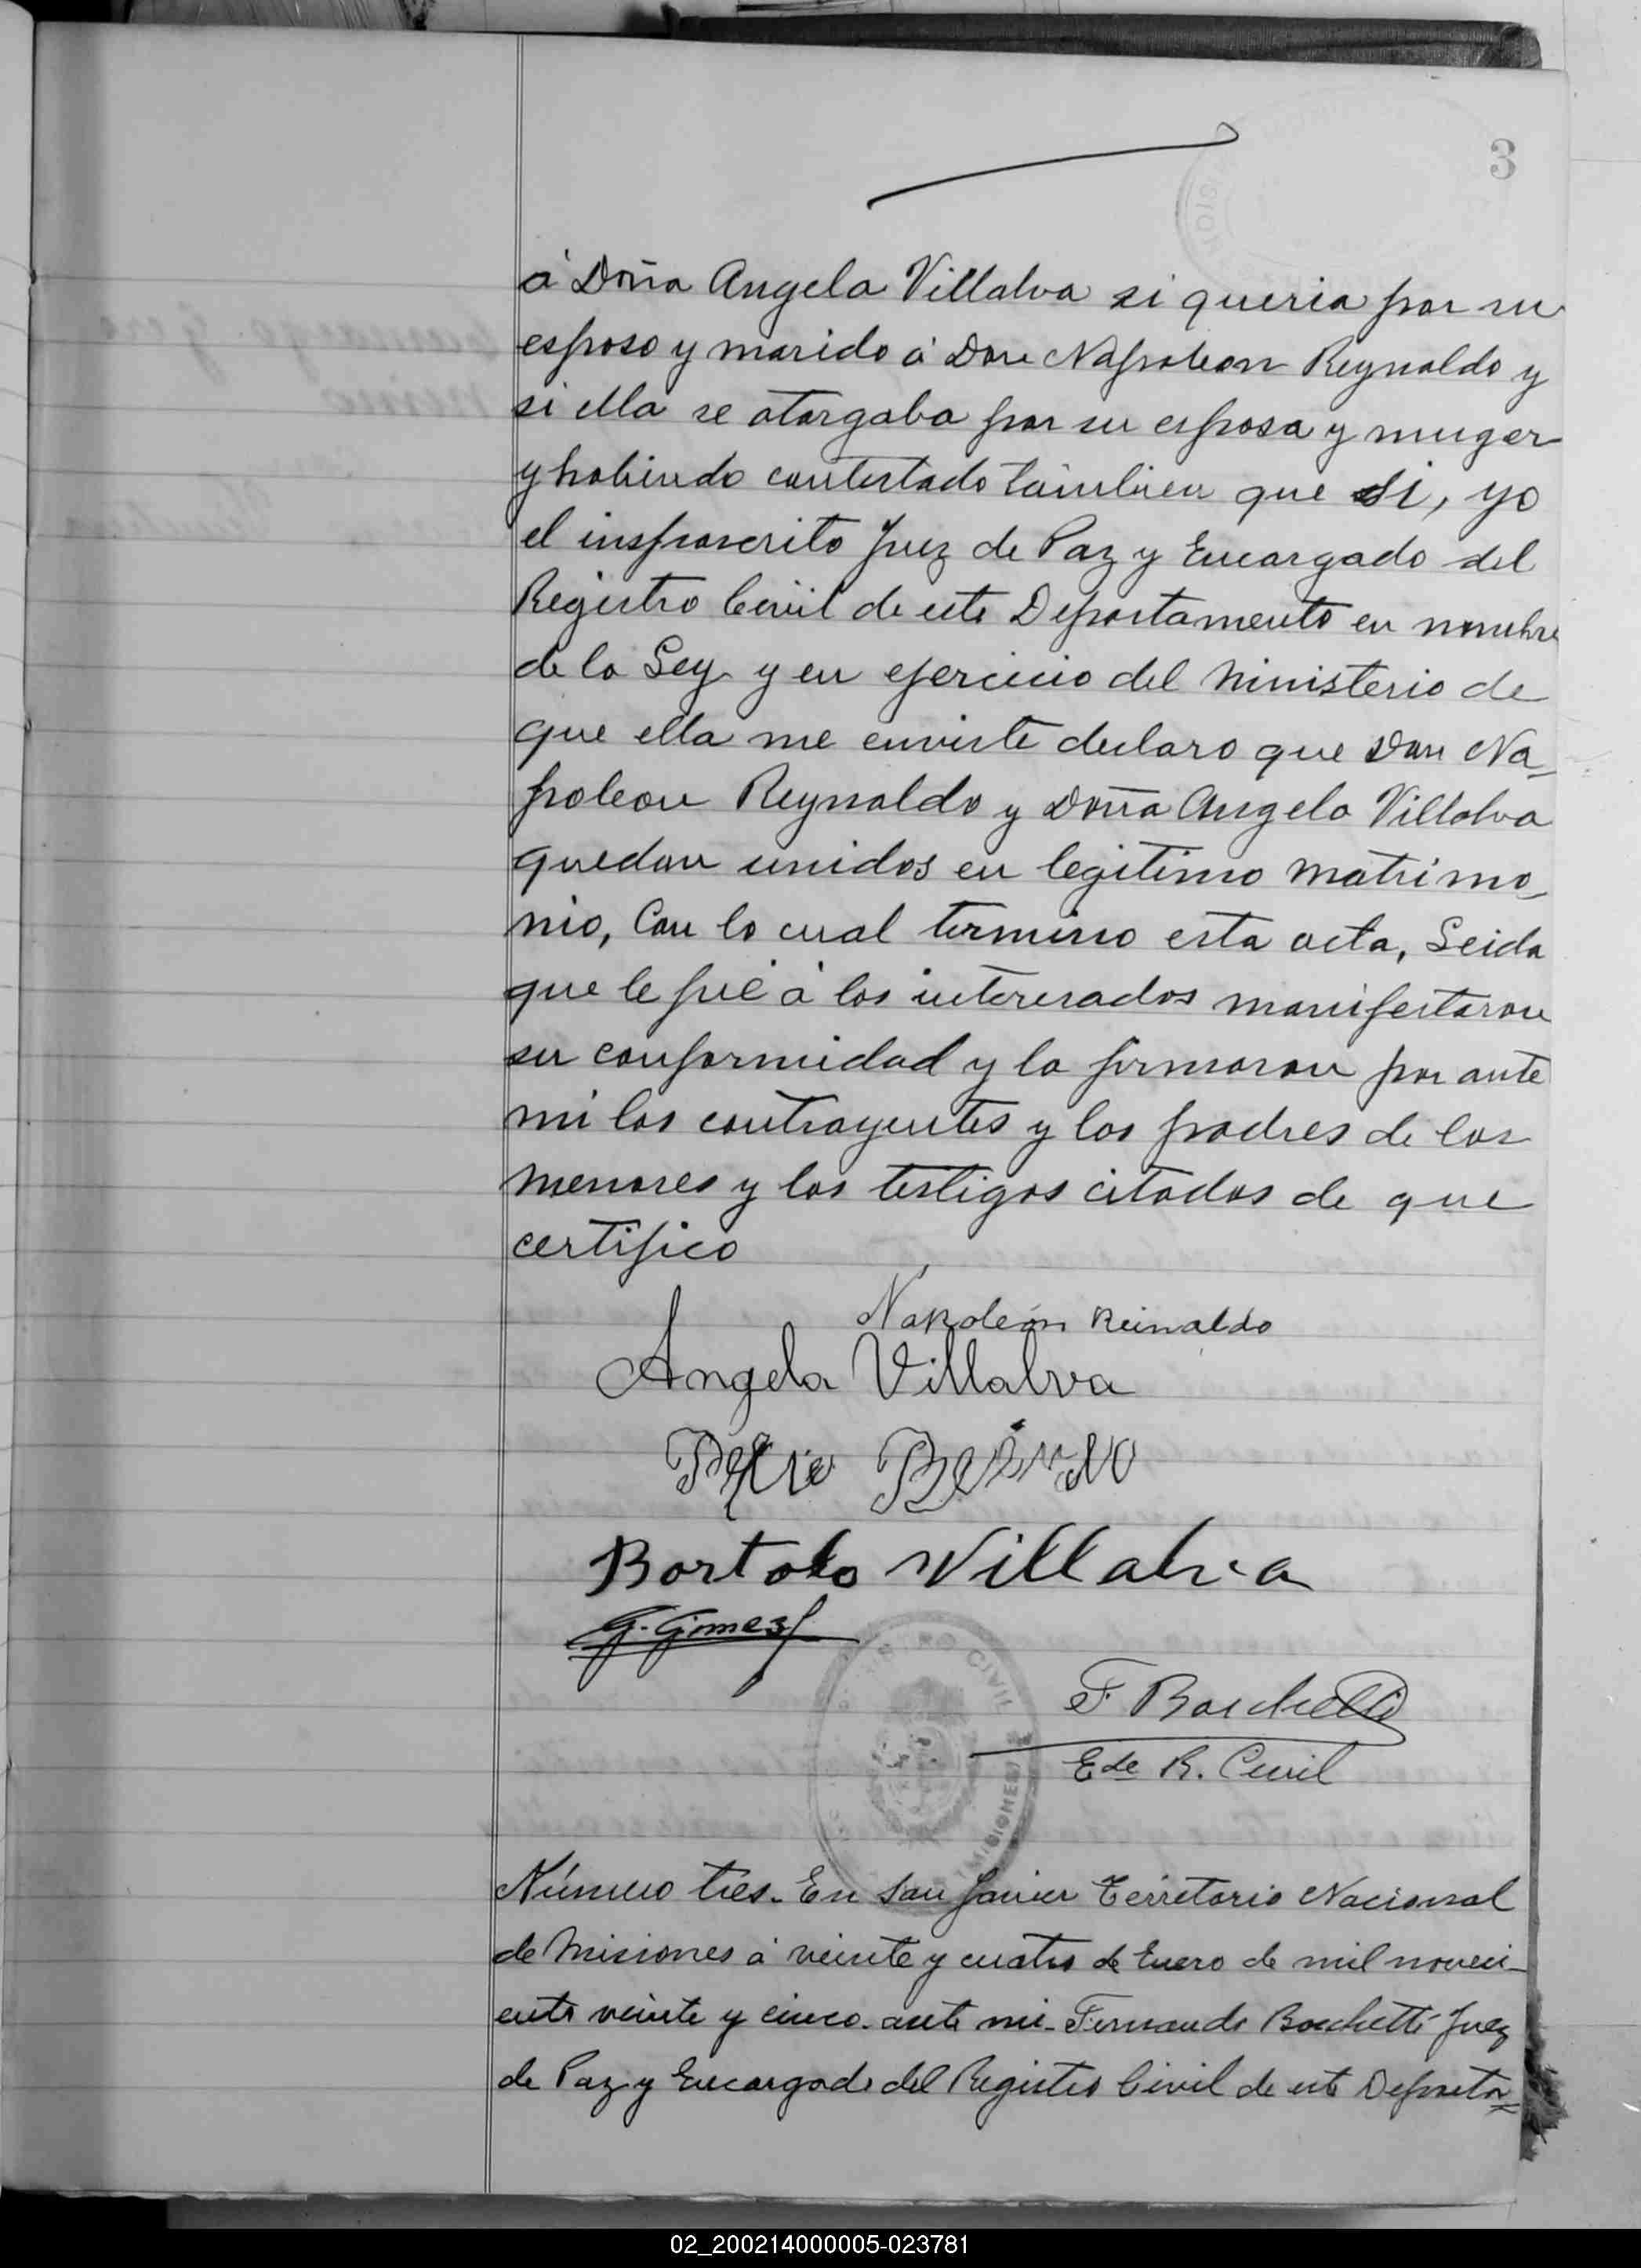 3
á Doña Angela Villalva si queria por su
esposo y marido á Don Napoleon Reynaldo y
si ella se otorgaba por su esposa y muger
y habiendo contestado tambien que si, yo
el insfrascrito Juez de Paz y Encargado del
Registro Civil de este Departamento en nombre
de la Ley y en ejercicio del Ministerio de
que ella me enviste declaro que Don Na-
poleon Reynaldo y Doña Angela Villalva
quedan unidos en legitimo matrimo-
nio, Con lo cual termino esta acta, Leida
que le fué á los interesados manifestaron
su conformidad y la firmaron por ante
mi los contrayentes y los padres de los
menores y los testigos citados de que
certifico
Napoleón Reinaldo
Angela Villalva
Bortolo Villalva
G. Gomez
REGISTRO CIVIL
(MISIONES)
F Boschetti
E de R. Civil
Número tres. En San Javier Territorio Nacional
de Misiones á veinte y cuatro de Enero de mil noveci-
ento veinte y cinco. ante mi. Fernando Boschetti Juez
de Paz y Encargado del Registro Civil de este Departa=
02_200214000005-023781